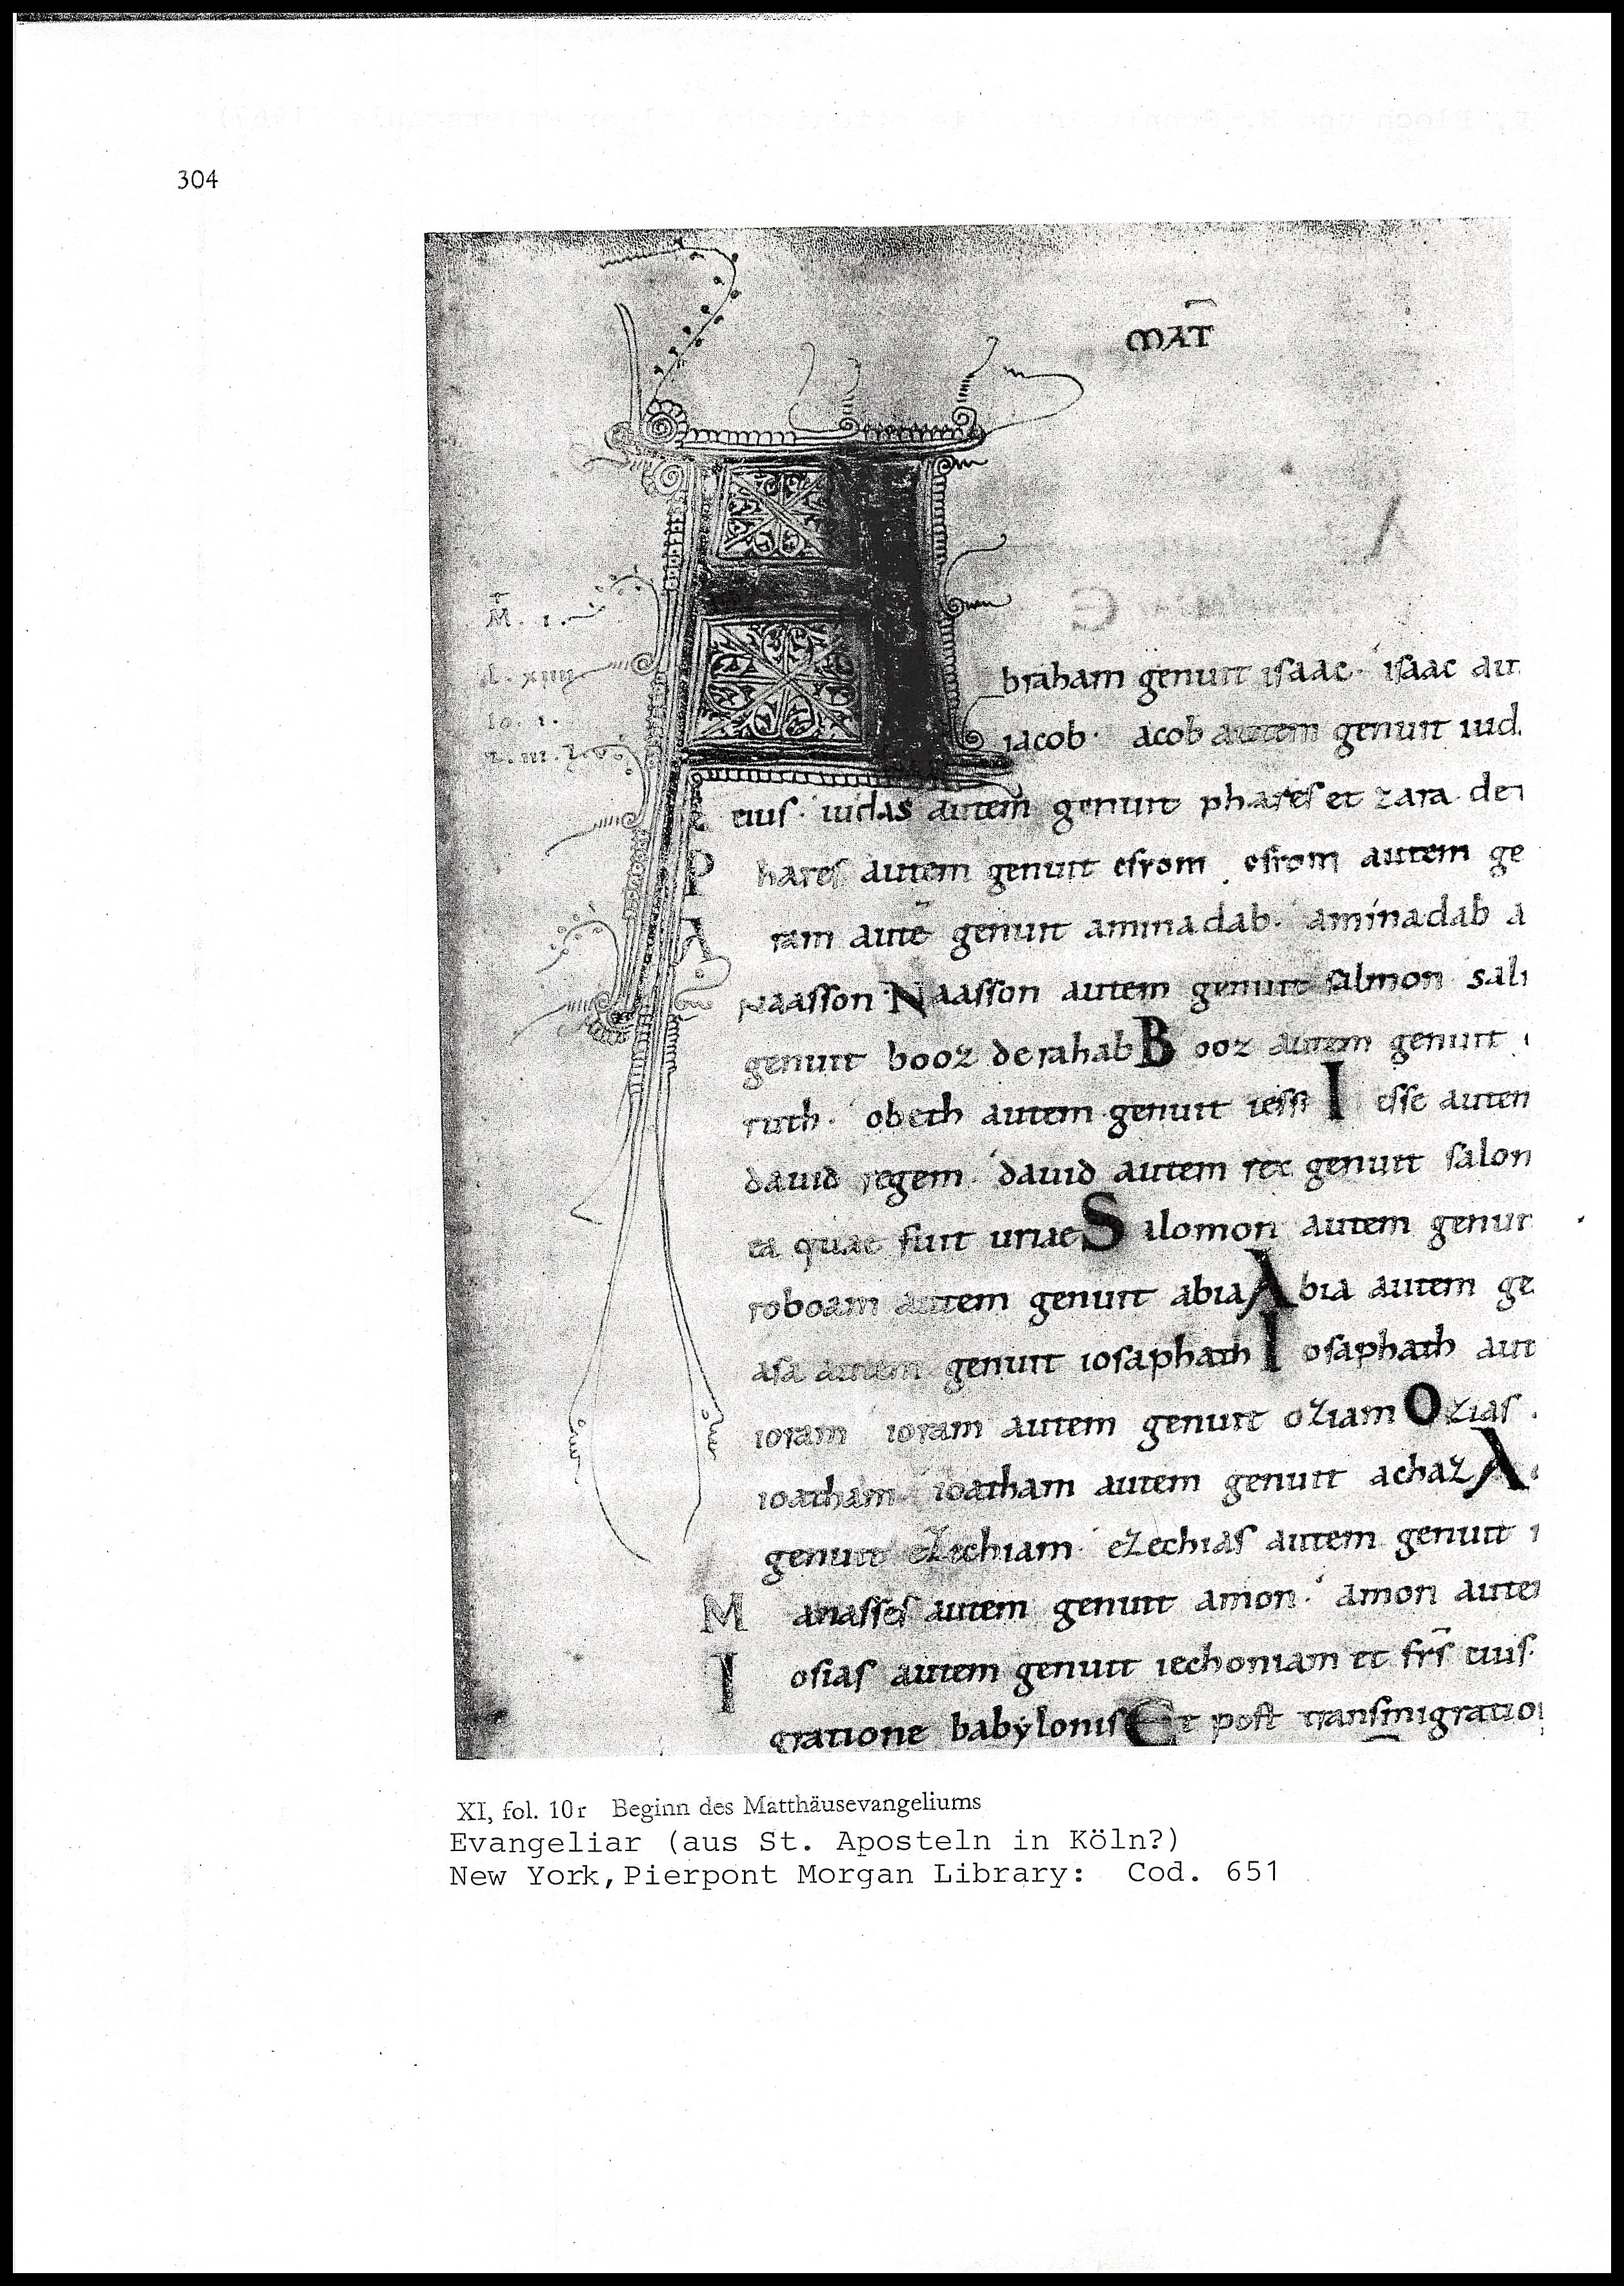 304
MAT̄
M̄. 1.
l. xiiii
io. 1.
A
braham genuit isaac· isaac au
iacob· acob autem genuit iud
eius· iudas autem genuit phares et zara de
P hares autem genuit esrom esrom autem ge
A ram autē genuit aminadab· aminadab a
Naasson Naasson autem genuit salmon sal
genuit booz de rahab Booz autem genuit
ruth· obeth autem genuit iesse Iesse autem
dauid regem· dauid autem rex genuit salon
ea quae fuit uriae Salomon autem genuit
roboam autem genuit abia Abia autem ge
asa autem genuit iosaphath Iosaphath aut
ioram ioram autem genuit oziam Ozias
ioatham· ioatham autem genuit achaz A
genuit ezechiam· ezechias autem genuit
M anasses autem genuit amon· amon autem
I osias autem genuit iechoniam et fr̄s eius·
gratione babylonis Et post transmigratio
XI, fol. 10r Beginn des Matthäusevangeliums
Evangeliar (aus St. Aposteln in Köln?)
New York, Pierpont Morgan Library: Cod. 651